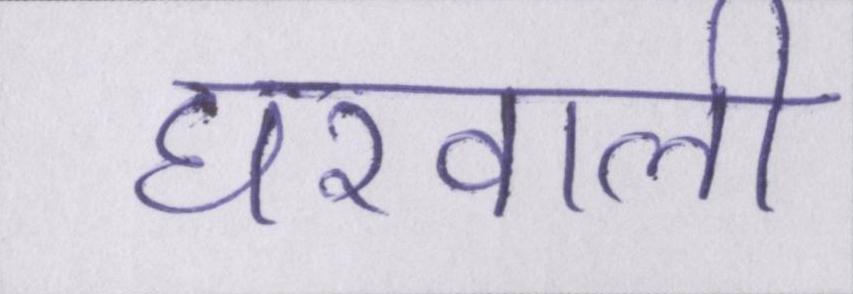 घरवाली